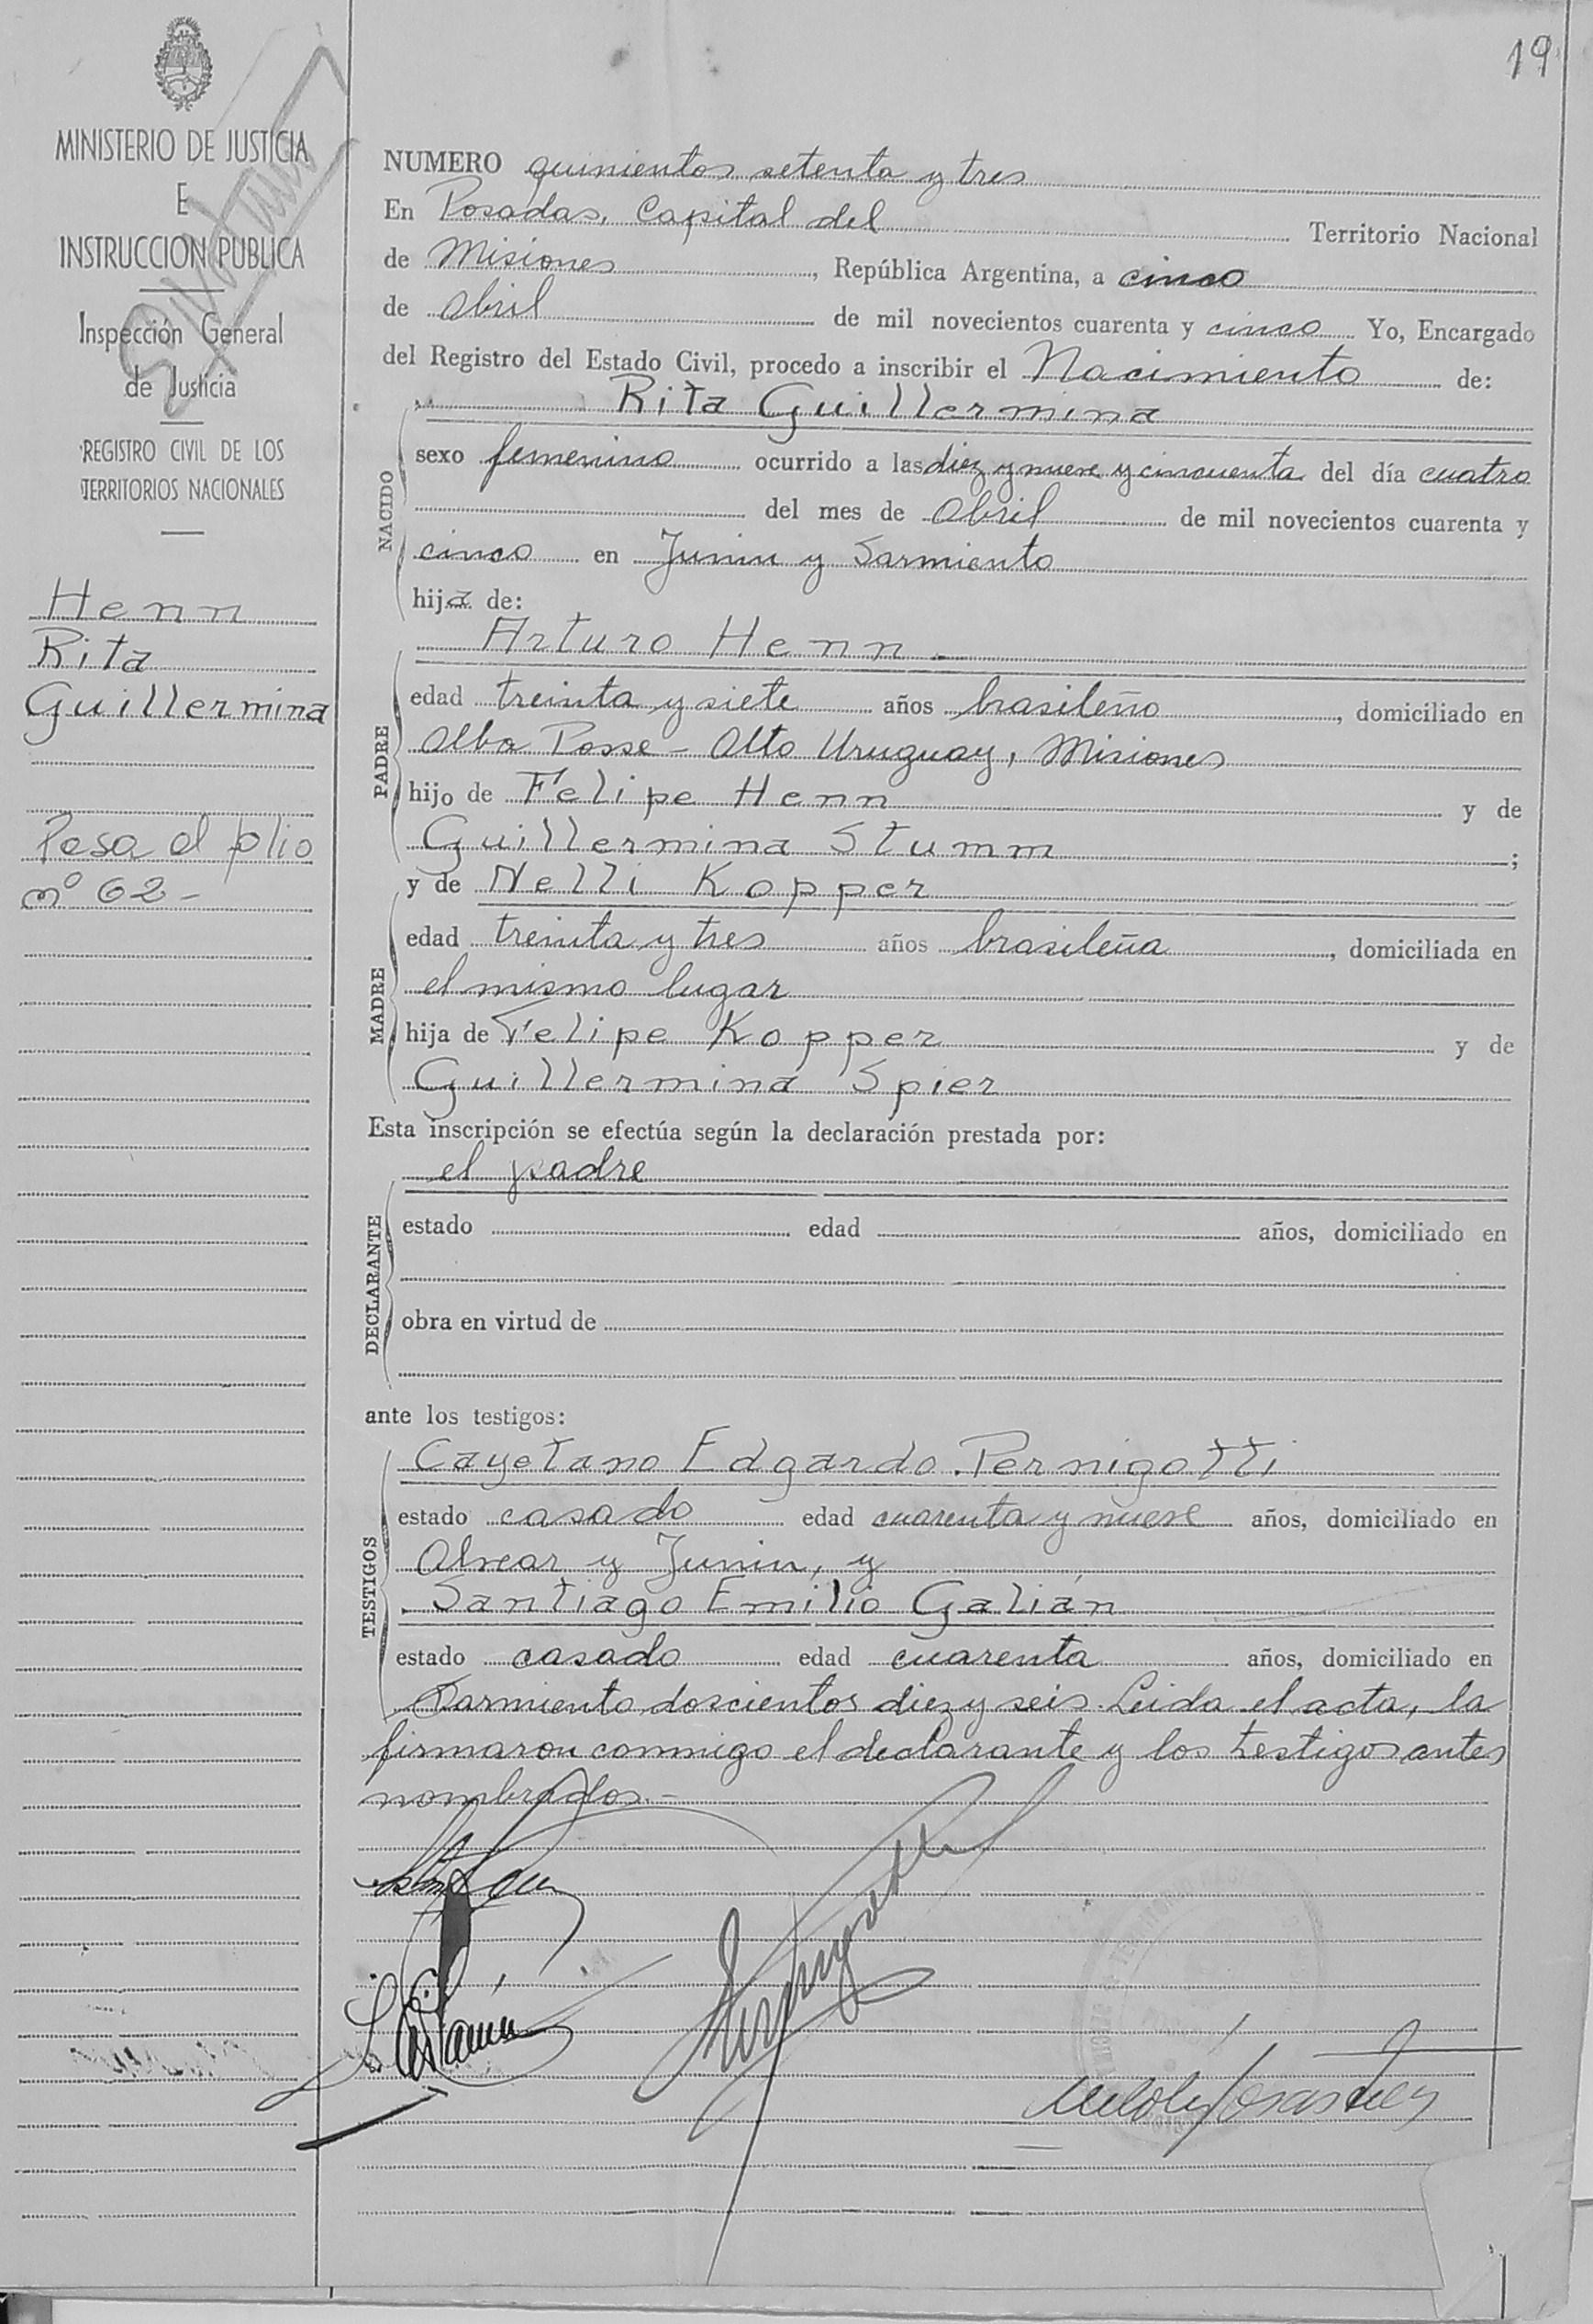 19
MINISTERIO DE JUSTICIA
E
INSTRUCCION PUBLICA
Inspección General
de Justicia
REGISTRO CIVIL DE LOS
TERRITORIOS NACIONALES
Henn
Rita
Guillermina
Pasa al folio
nº 62-
NUMERO quinientos setenta y tres
En Posadas, Capital del Territorio Nacional
de Misiones, República Argentina, a cinco
de Abril de mil novecientos cuarenta y cinco Yo, Encargado
del Registro del Estado Civil, procedo a inscribir el Nacimiento de:
Rita Guillermina
NACIDO
sexo femenino ocurrido a las diez y nueve y cincuenta del día cuatro
del mes de Abril de mil novecientos cuarenta y
cinco en Junin y Sarmiento
hija de:
Arturo Henn
PADRE
edad treinta y siete años brasileño, domiciliado en
Alba Posse - Alto Uruguay, Misiones
hijo de Felipe Henn y de
Guillermina Stumm;
y de Nelli Kopper
MADRE
edad treinta y tres años brasileña, domiciliada en
el mismo lugar
hija de Felipe Kopper y de
Guillermina Spier
Esta inscripción se efectúa según la declaración prestada por:
el padre
DECLARANTE
estado edad años, domiciliado en
obra en virtud de
ante los testigos:
Cayetano Edgardo Pernigotti
TESTIGOS
estado casado edad cuarenta y nueve años, domiciliado en
Alvear y Junin, y
Santiago Emilio Galián
estado casado edad cuarenta años, domiciliado en
Sarmiento doscientos diez y seis. Leida el acta, la
firmaron conmigo el declarante y los testigos antes
nombrados.-